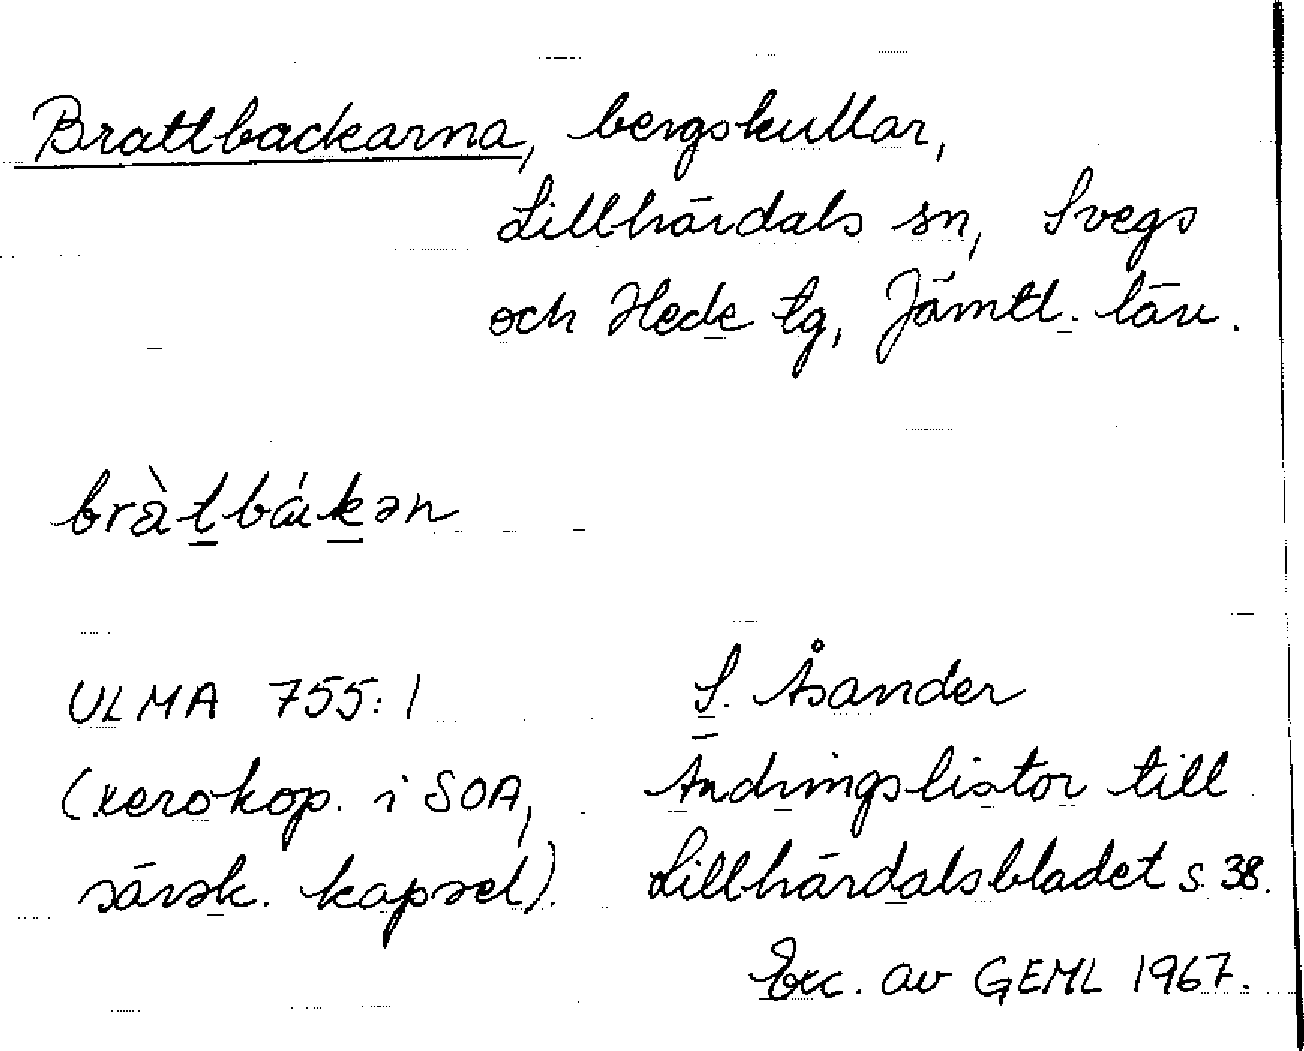 Brattbackarna, bergskullar,
Lillhärdals sn, Svegs
och Hede tg, Jämtl. län.
bràt̲bák̲ən
ULMA 755:1
(xerokop. i SOA,
särsk. kapsel).
S. Åsander
Ändringslistor till
Lillhärdalsbladet s 38.
Exc. av GEML 1967.